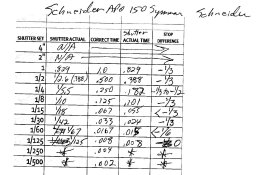 Schneider APO 150 Symmar Schneider
SHUTTER SET SHUTTER ACTUAL CORRECT TIME shutter ACTUAL TIME STOP DIFFERENCE
4" N/A
2" N/A
1 .829 1.0 .829 -1/3
1/2 1/2.6 (.388) .500 .388 -1/3
1/4 1/5.5 .250 .182 -1/3 to -1/2
1/8 1/10 .125 .101 -1/3
1/15 1/18 .067 .055 <-1/3
1/30 1/42 .033 .024 -1/3
1/60 1/67 .0167 .015 <-1/6
1/125 1/125 .008 .008 0
1/250 * .004 * *
1/500 * .002 * *